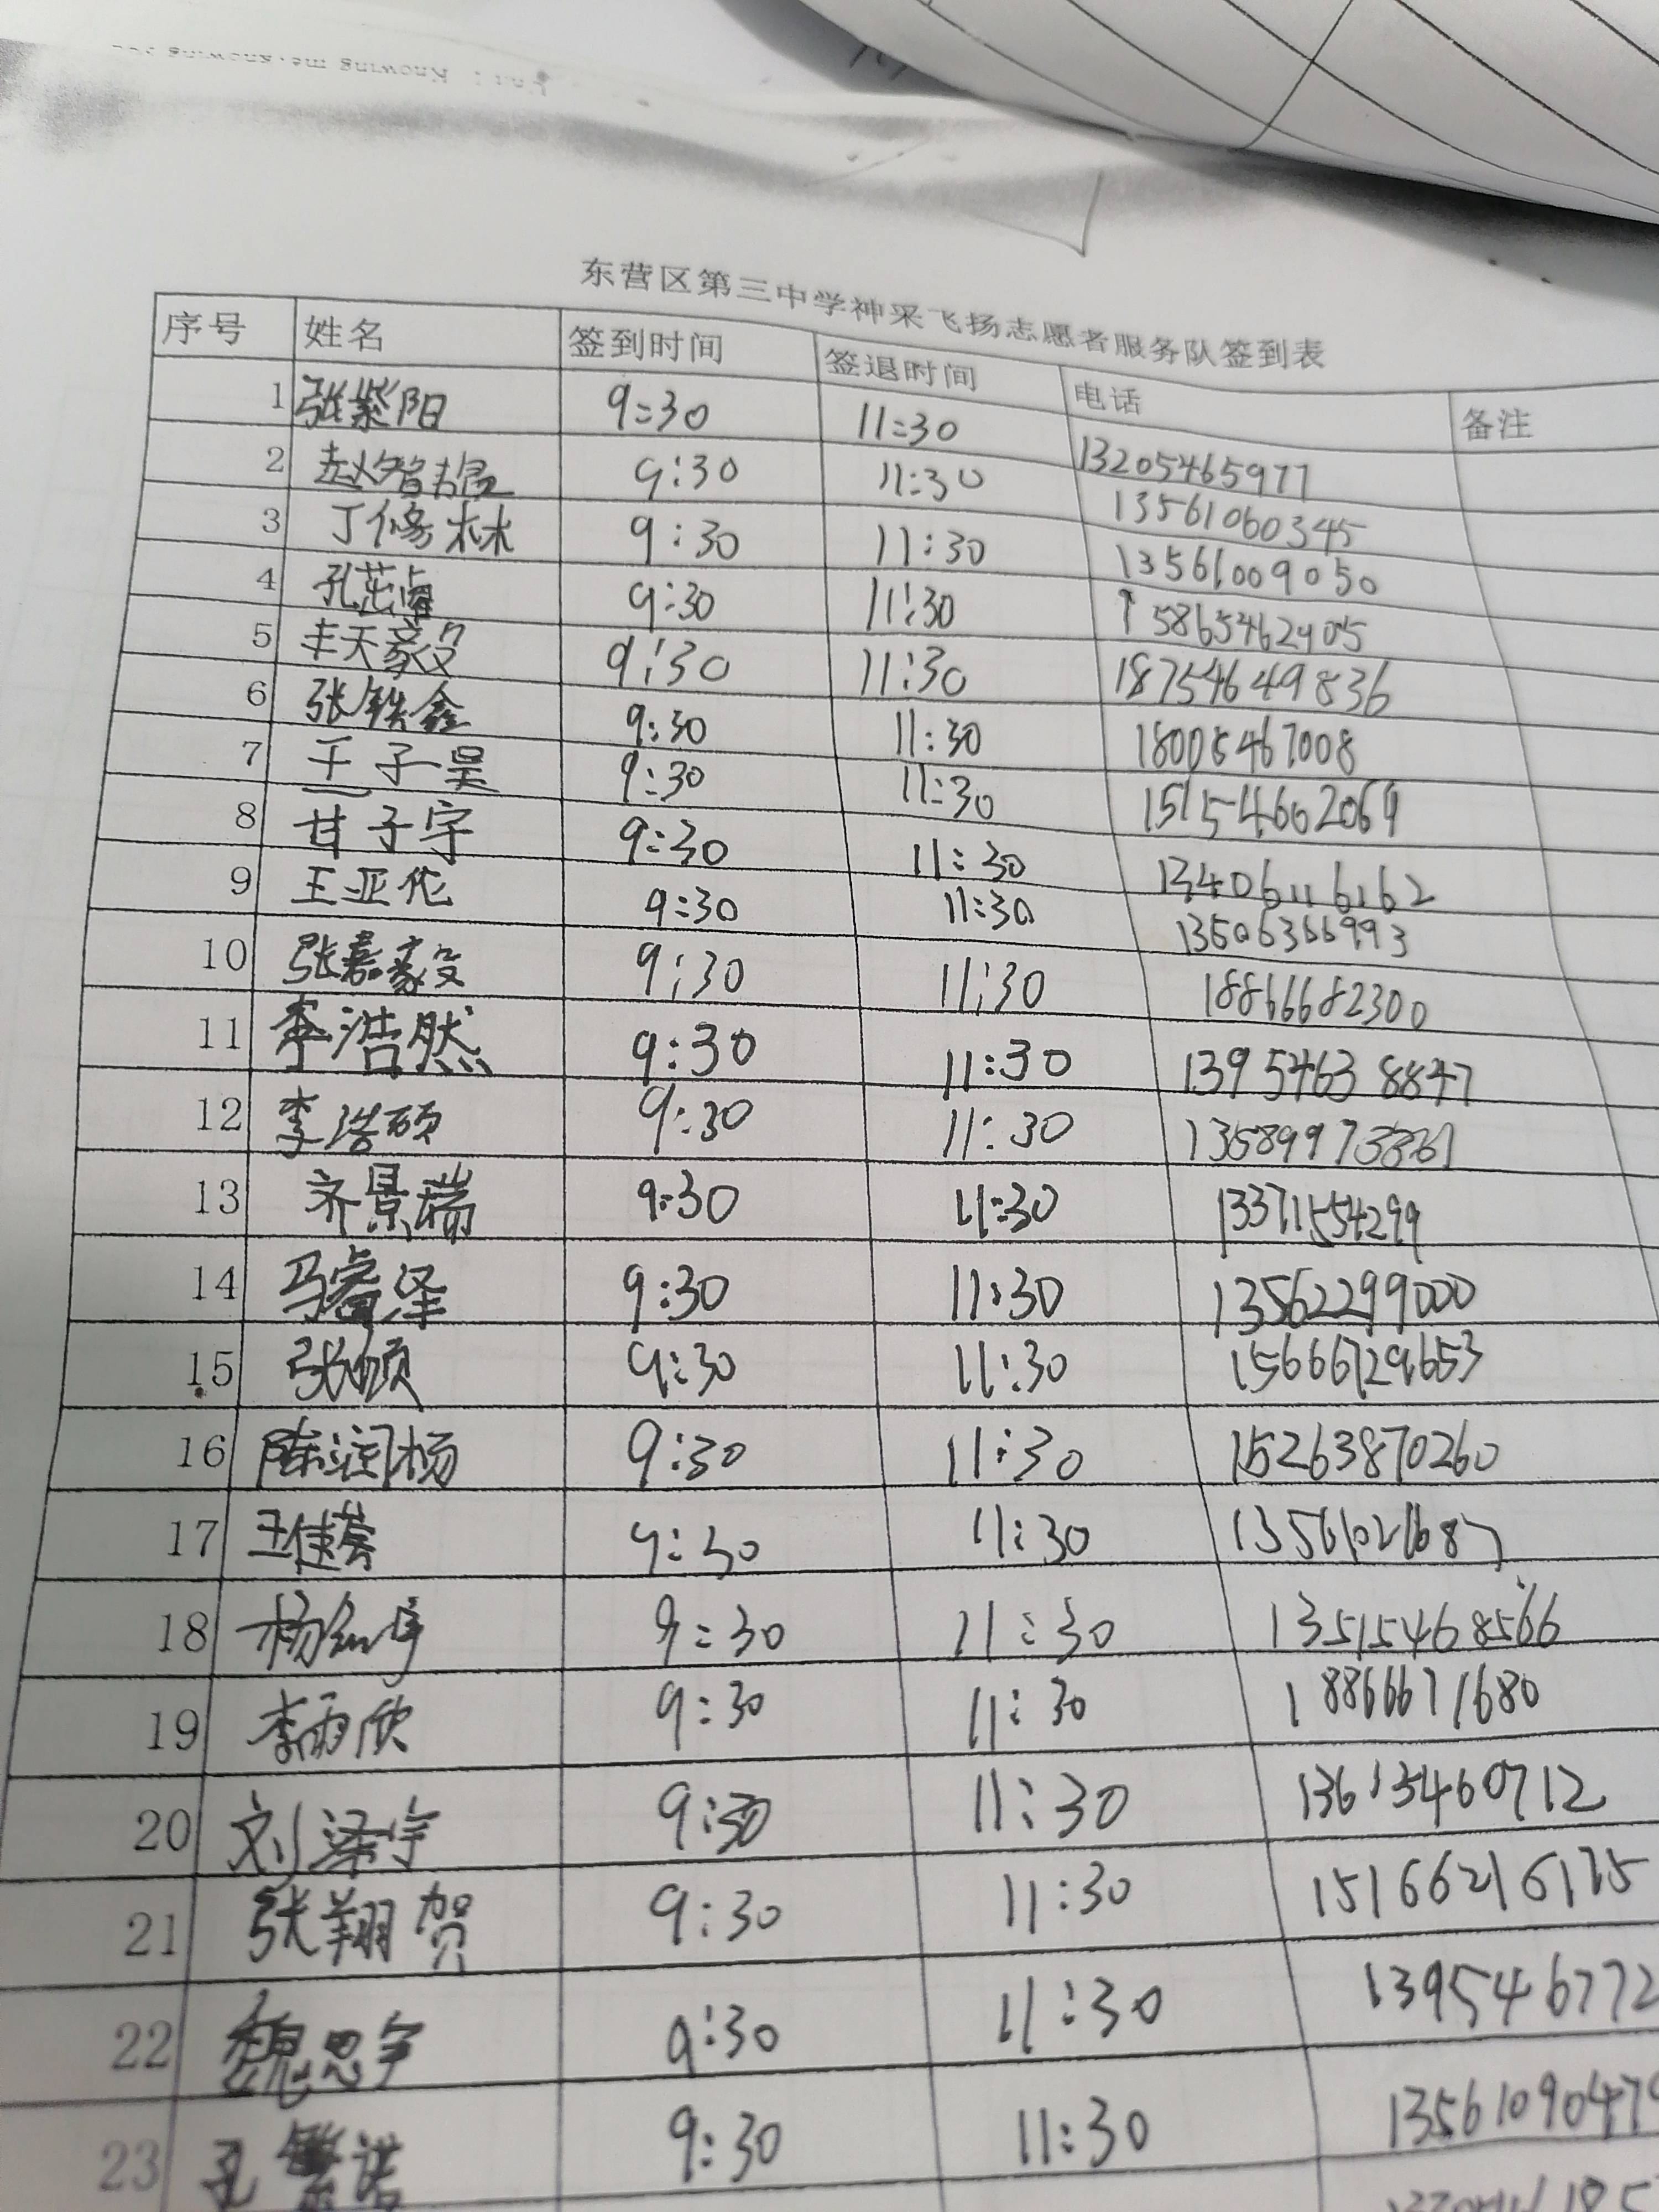 东营区第三中学神采飞扬志愿者服务队签到表
序号 姓名 签到时间 签退时间 电话 备注
1 张紫阳 9:30 11:30 13205465977
2 赵智 9:30 11:30 13561060345
3 丁修林 9:30 11:30 13561009050
4 孔茈睿 9:30 11:30 15865462405
5 丰天毅 9:30 11:30 18754649836
6 张铁鑫 9:30 11:30 18005467008
7 王子昊 9:30 11:30 15154662069
8 甘子宇 9:30 11:30 13406116162
9 王亚伦 9:30 11:30 13506366993
10 张嘉毅 9:30 11:30 18866682300
11 李浩然 9:30 11:30 13954638847
12 李浩硕 9:30 11:30
13 齐景瑞 9:30 11:30 13371554299
14 马睿泽 9:30 11:30 13562299000
15 张硕 9:30 11:30 15666729653
16 陈润杨 9:30 11:30 15263870260
17 王佳 9:30 11:30 13561021687
18 杨 9:30 11:30 13515468566
19 李雨欣 9:30 11:30 18866671680
20 刘泽宇 9:30 11:30 13615460712
21 张翔贺 9:30 11:30 15166216175
22 魏思宇 9:30 11:30 139546772
23 孔繁诺 9:30 11:30 1356109047